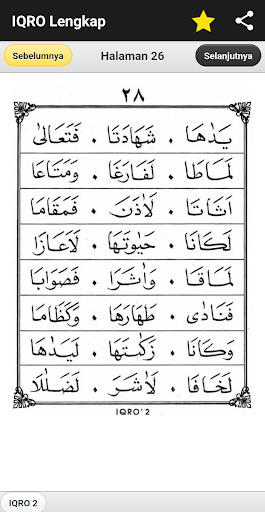 IQRO Lengkap
Sebelumnya Halaman 26 Selanjutnya
٢٨
يَدَٰهَا . شَهَادَتَا . فَتَعَالَىٰ
لَمَاطَا . لَفَارِغَا . وَمَتَاعَا
اَثَاثَا . لَأَذَنَ . فَمَقَامَا
لَكَانَا . حَيٰوتَهَا . لَاَعَازَا
لَمَاقَا . وَاَثَرَا . فَصَوَابَا
فَنَادٰى . طَهَارَهَا . وَكَظَامَا
وَكَانَا . زَكٰتَهَا . لَيَدَٰهَا
لَخَافَا . لَاَشَرَ . لَضَلٰلَا
IQRO' 2
IQRO 2